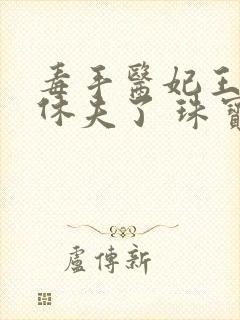 毒手醫妃王
休夫了 珠寶
盧傳新